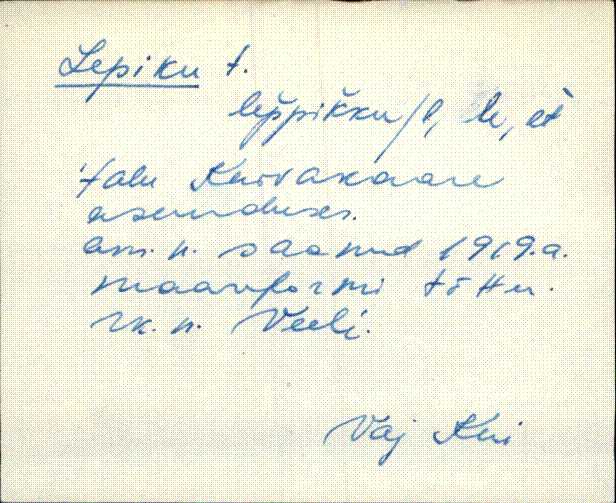 Lepiku t.
lep̌pik̆ku/l, le, ət
talu Kuivakaare
asunduses.
am. n. saanud 1919.a.
maareformi tõttu.
rk. n. Veeli.
Vaj Kui